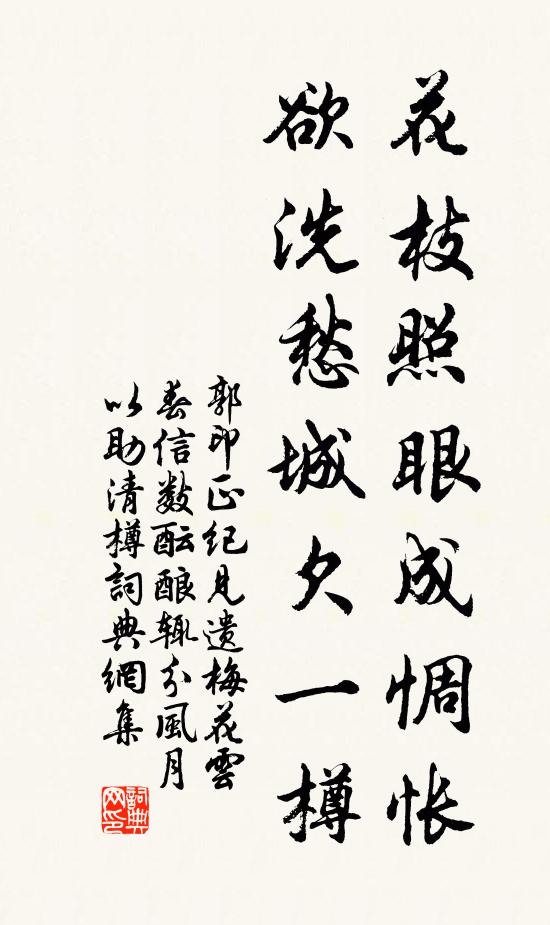 花枝照眼成惆怅
欲洗愁城欠一樽
郭印正纪见遗梅花云
春信数酝酿辄分风月
以助清樽詞典網集
詞典网印